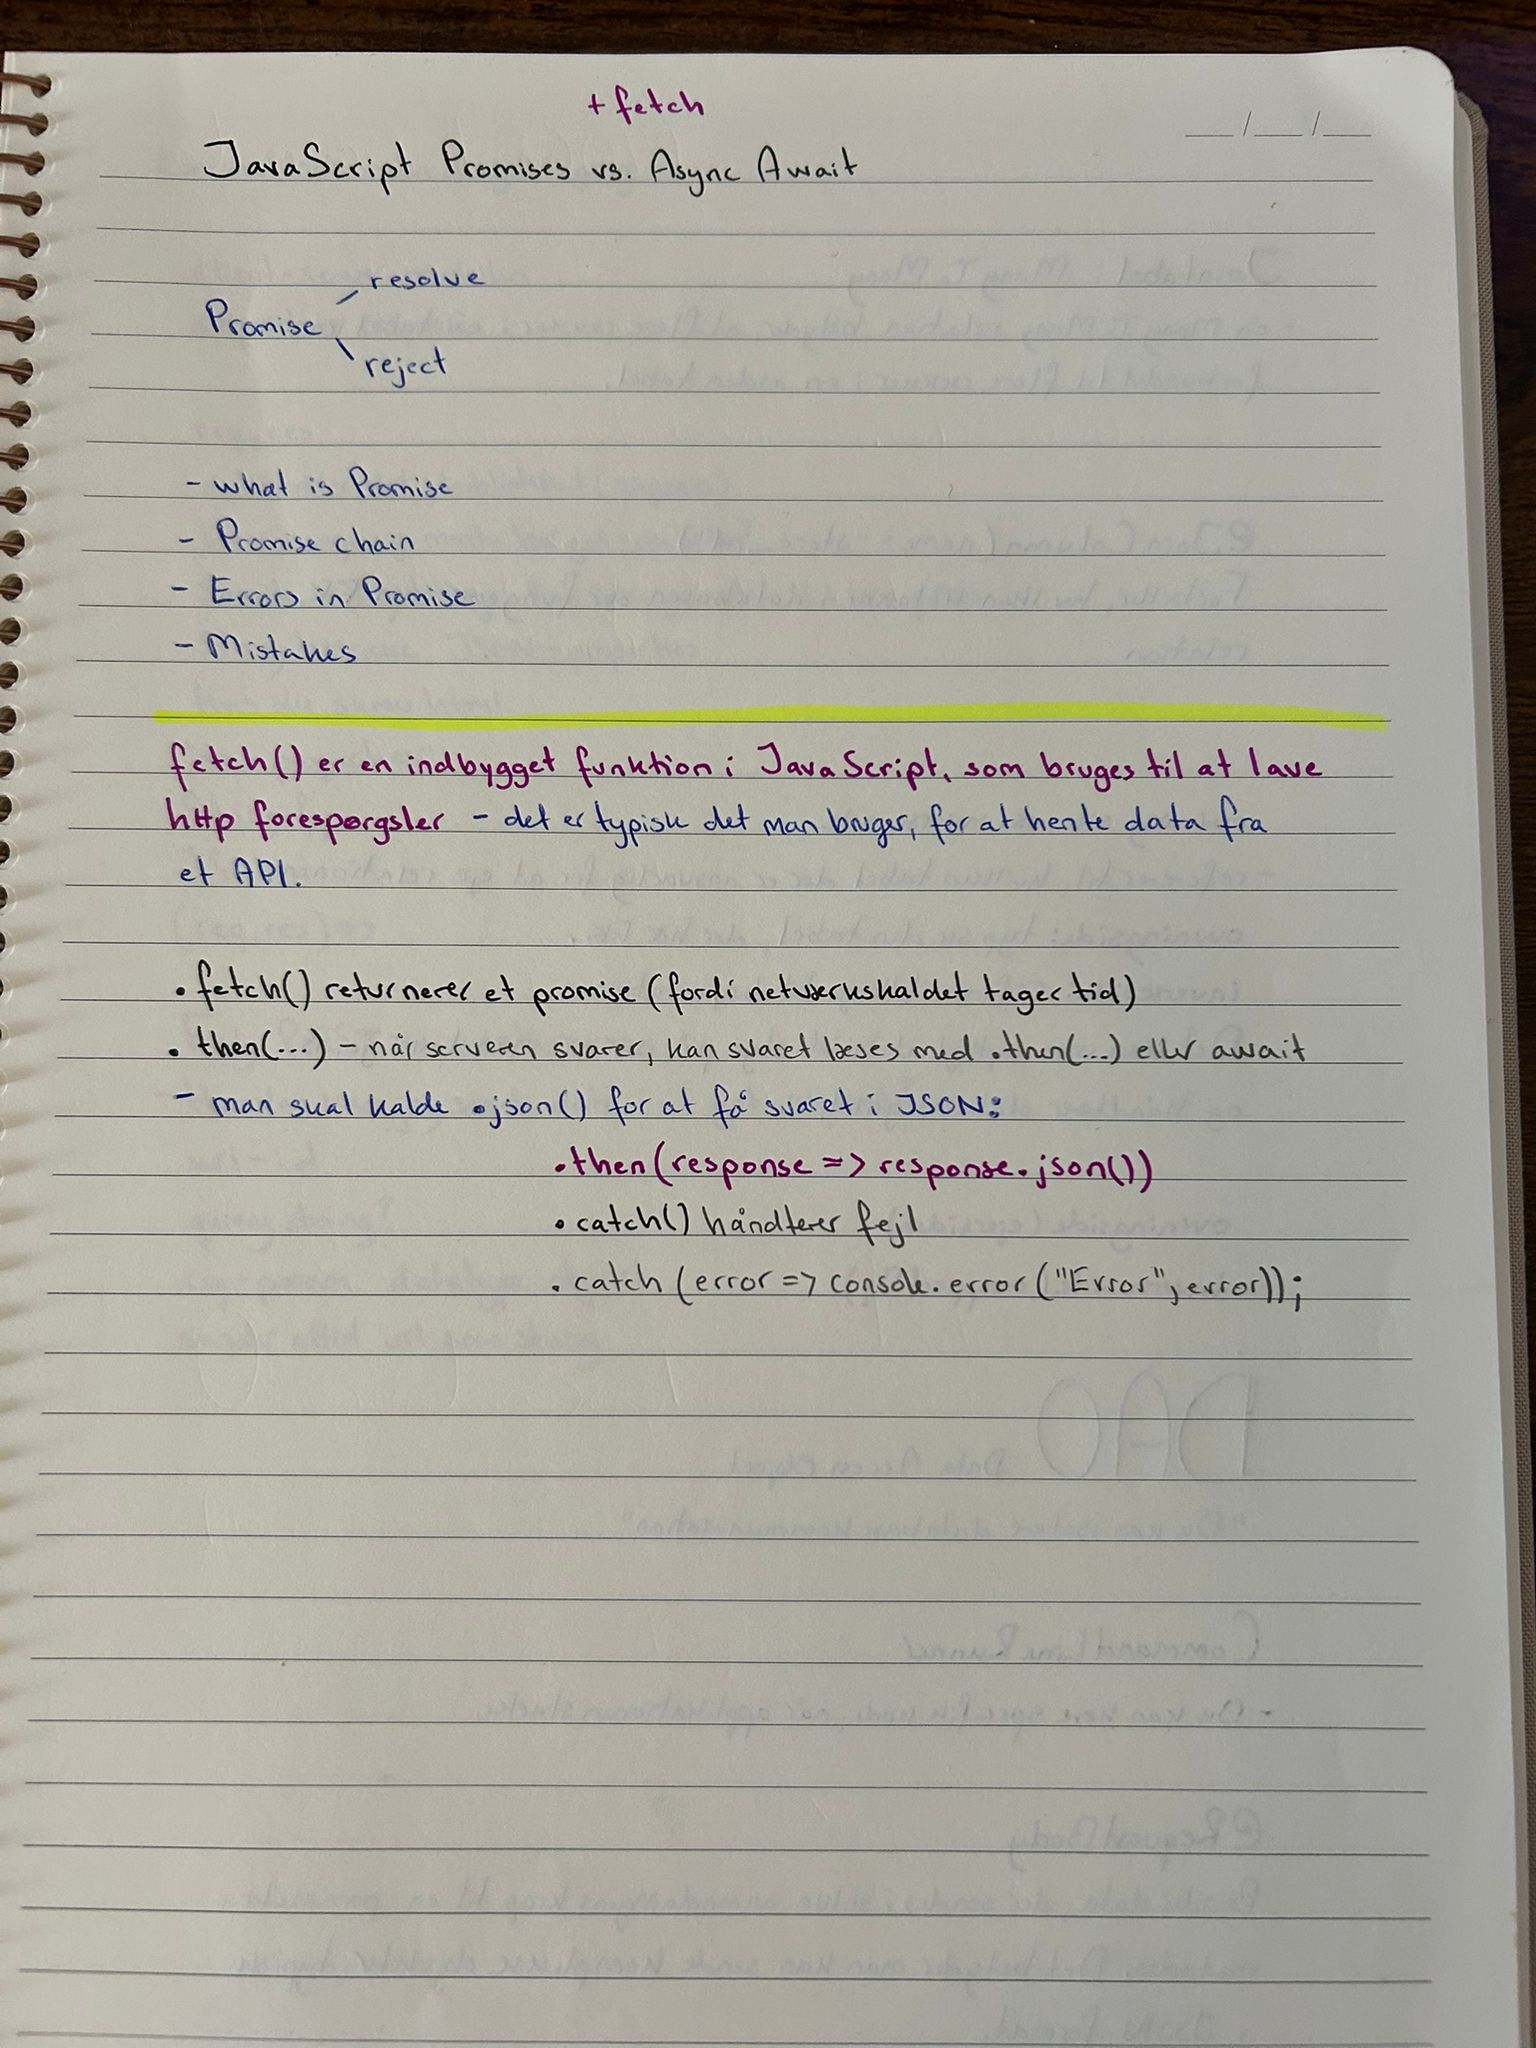 + fetch
JavaScript Promises vs. Async Await
resolve
Promise
reject
- what is Promise
- Promise chain
- Errors in Promise
- Mistakes
fetch() er en indbygget funktion i JavaScript, som bruges til at lave
http forespørgsler - det er typisk det man bruger, for at hente data fra
et API.
• fetch() returnerer et promise (fordi netværkskaldet tager tid)
• then(...) - når serveren svarer, kan svaret læses med .then(...) eller await
- man skal kalde .json() for at få svaret i JSON:
.then(response => response.json())
.catch() håndterer fejl
.catch(error => console.error("Error", error));